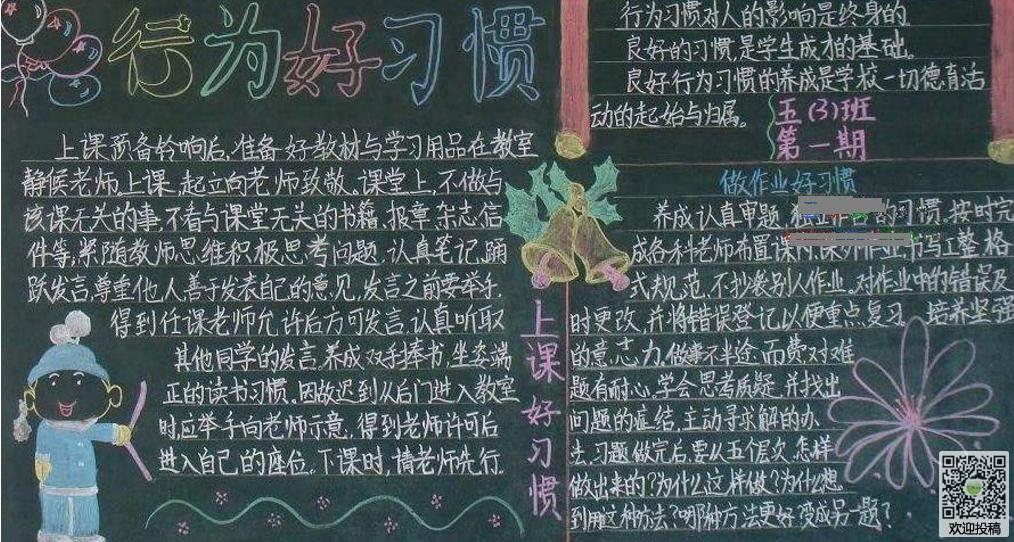 行为好习惯
上课预备铃响后,准备好教材与学习用品在教室
静候老师上课,起立向老师致敬。课堂上,不做与
该课无关的事,不看与课堂无关的书籍、报章、杂志、信
件等,紧随教师思维积极思考问题,认真笔记,踊
跃发言,尊重他人,善于发表自己的意见,发言之前要举手,
得到任课老师允许后方可发言,认真听取
其他同学的发言。养成双手捧书,坐姿端
正的读书习惯。因故迟到从后门进入教室
时,应举手向老师示意,得到老师许可后
进入自己的座位。下课时,请老师先行。
上课好习惯
行为习惯对人的影响是终身的。
良好的习惯,是学生成才的基础。
良好行为习惯的养成是学校一切德育活
动的起始与归属。
五(3)班
第一期
做作业好习惯
养成认真审题,的习惯。按时完
成各科老师布置课内、课外作业,书写工整,格
式规范,不抄袭别人作业。对作业中的错误及
时更改,并将错误登记以便重点复习。培养坚强
的意志力,做事不半途而费对难
题有耐心。学会思考质疑,并找出
问题的症结,主动寻求解的办
法,习题做完后,要从五个层次,怎样
做出来的?为什么这样做?为什么想
到用这种方法?哪种方法更好?变成另一题?
欢迎投稿